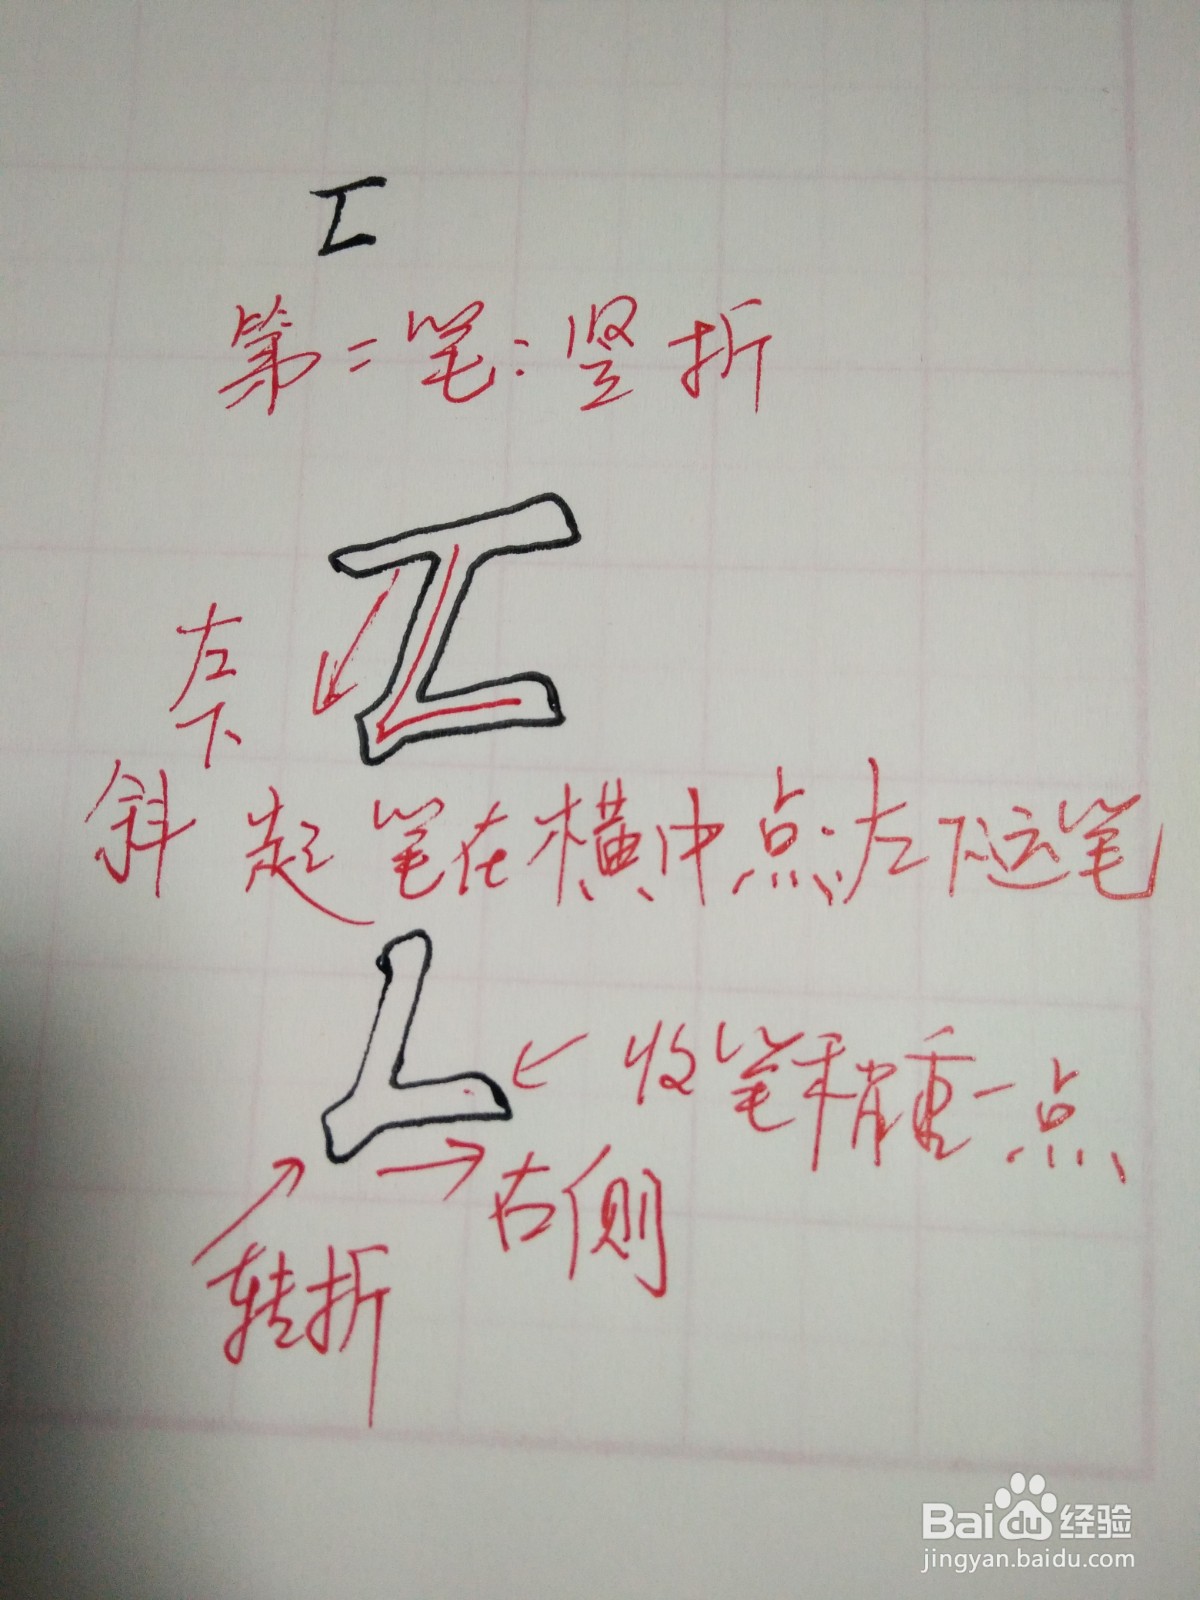 第二笔:竖折
左
下
斜
起笔在横中点:左下运笔
收笔稍重一点
右侧
转折
Baidu经验
jingyan.baidu.com